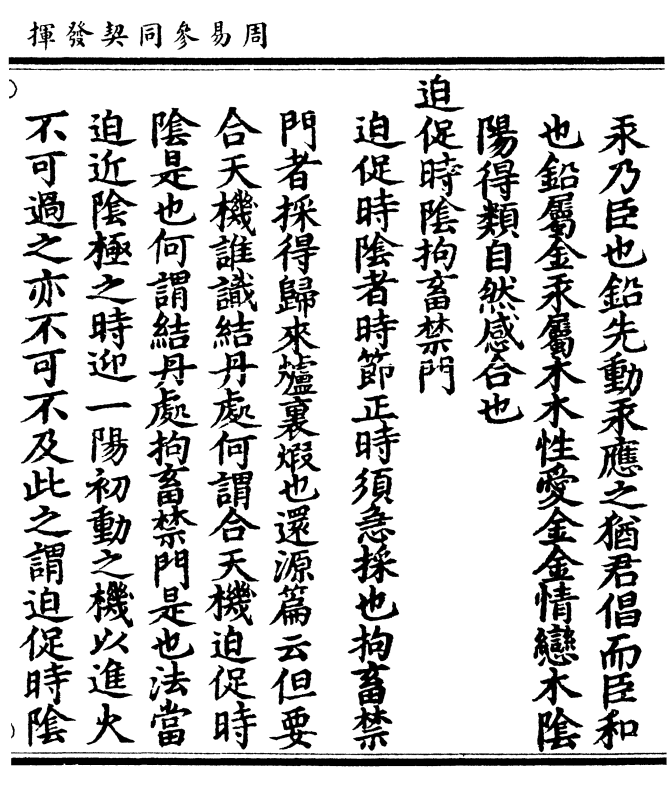 周易參同契發揮
汞乃臣也鉛先動汞應之猶君倡而臣和
也鉛屬金汞屬木木性愛金金情戀木陰
陽得類自然感合也
迫促時陰拘畜禁門
迫促時陰者時節正時須急採也拘畜禁
門者採得歸來爐裏煆也還源篇云但要
合天機誰識結丹處何謂合天機迫促時
陰是也何謂結丹處拘畜禁門是也法當
迫近陰極之時迎一陽初動之機以進火
不可過之亦不可不及此之謂迫促時陰